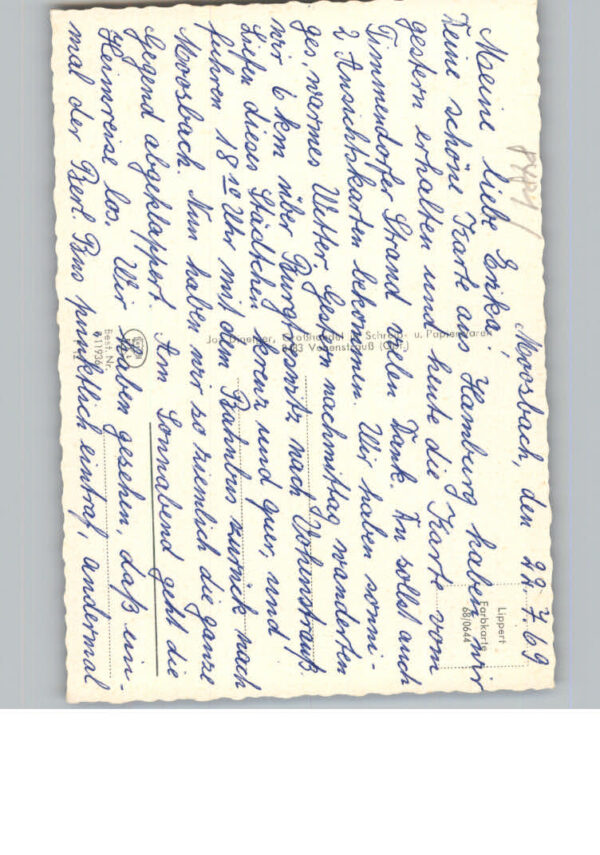 Moosbach, den 22.7.69
Meine liebe Erika,
Deine schöne Karte aus Hamburg haben wir
gestern erhalten und heute die Karte vom
Timmendorfer Strand. Vielen Dank. Du sollst auch
2 Ansichtskarten bekommen. Wir haben sonni-
ges, warmes Wetter. Gestern nachmittag wanderten
wir 6 km über Burgtreswitz nach Vohenstrauß.
Liefen dieses Städtchen kreuz und quer, und
fuhren 18 10 Uhr mit dem Bahnbus zurück nach
Moosbach. Nun haben wir so ziemlich die ganze
Gegend abgeklappert. Am Sonnabend geht die
Heimreise los. Wir haben gesehen, daß ein-
mal der Berl. Bus pünktlich eintraf, andermal
Großhandel Schreib- u. Papierwaren
Vohenstrauß (Opf.)
Best. Nr.
Lippert
Farbkarte
68/0644